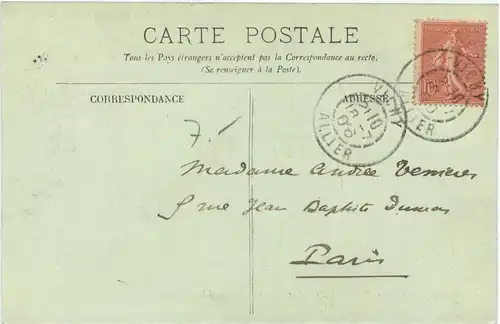 CARTE POSTALE
Tous les Pays étrangers n'acceptent pas la Correspondance au recto.
(Se renseigner à la Poste).
CORRESPONDANCE
ADRESSE
VICHY
ALLIER
VICHY
ALLIER
7.
Madame Andrée
5 rue Jean Baptiste Dumas
Paris